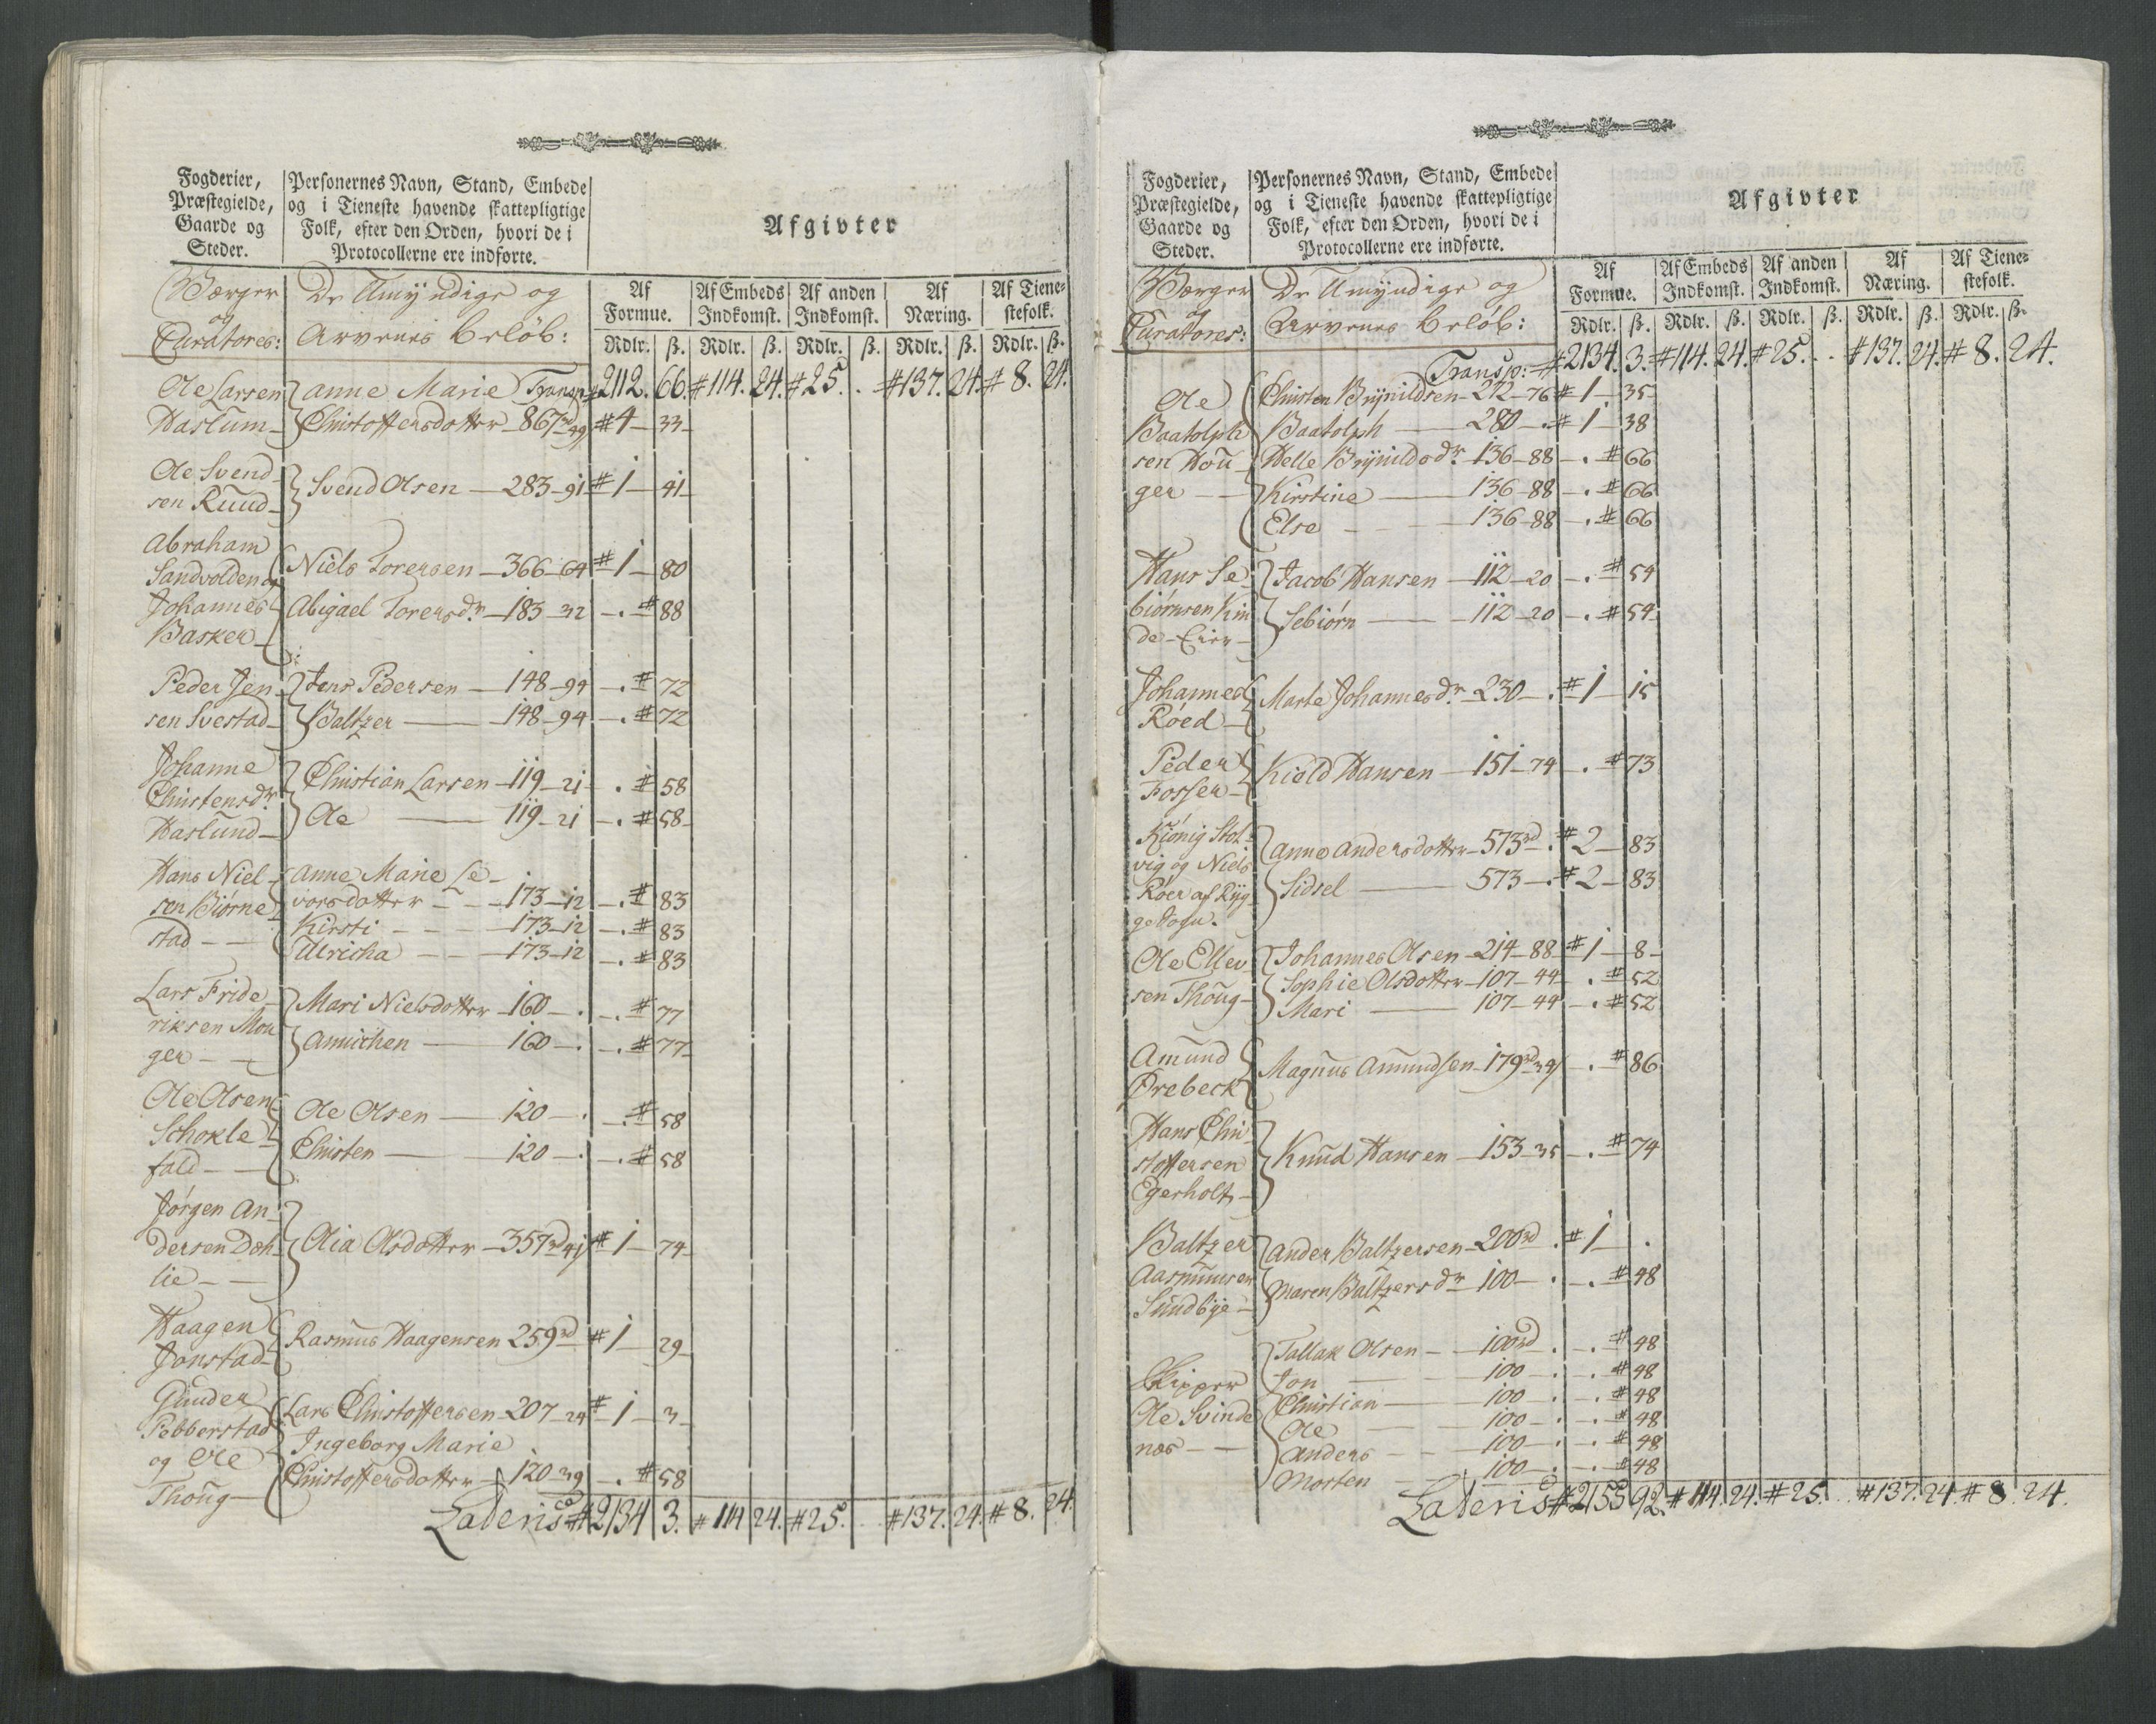 Fogderier,
Præstegielde,
Gaarde og
Steder.
Personernes Navn, Stand, Embede
og i Tieneste havende skattepligtige
Folk, efter den Orden, hvori de i
Protocollerne ere indførte.
Afgivter
Værger
og
Curatores:
De Umÿndige og
Arvenes beløb:
Af
Formue.
Af Embeds
Indkomst.
Af anden
Indkomst.
Af
Næring.
Af Tiene-
stefolk.
Rdlr. ß. Rdlr. ß. Rdlr. ß. Rdlr. ß. Rdlr. ß.
Ole Larsen
Haslum
Anne Marie Transp: #2112. 66. #114. 24. #25. . #137. 24. #8. 24.
Christoffersdotter 867rd 49 #4 33
Ole Svend-
sen Ruud
Svend Olsen 283 91 #1 41
Abraham
Sandvolden og
Johannes
Basker
Niels Torersen 366 64 #1 80
Abigael Torersdr. 183 32 . # 88
Peder Jen-
sen Svestad
Jens Pedersen 148 94 . # 72
Baltzer 148 94 . # 72
Johanne
Christensdr.
Haslund
Christian Larsen 119 21 . # 58
Ole 119 21 . # 58
Hans Niel-
sen Biørne-
stad
Anne Marie Le-
vorsdotter 173 12 . # 83
Kirsti 173 12 . # 83
Ulricha 173 12 . # 83
Lars Fride-
riksen Mou-
ger
Mari Nielsdotter 160 . . # 77
Annichen 160 . . # 77
Ole Olsen
Schokle-
fald
Ole Olsen 120 . . # 58
Christen 120 . . # 58
Jørgen An-
dersen Deh-
lie
Olia Olsdotter 357rd 41 #1 74
Haagen
Jonstad
Rasmus Haagensen 259rd #1 29
Gunder
Pebberstad
og Ole
Thoug
Lars Christoffersen 207 24 #1 3
Ingeborg Marie
Christoffersdotter 120 39 . # 58
Lateris #2134 3. #114 24. #25. #137. 24. #8. 24.
Fogderier,
Præstegielde,
Gaarde og
Steder.
Personernes Navn, Stand, Embede
og i Tieneste havende skattepligtige
Folk, efter den Orden, hvori de i
Protocollerne ere indførte.
Afgivter
Værger
og
Curatores:
De Umÿndige og
Arvenes beløb:
Af
Formue.
Af Embeds
Indkomst.
Af anden
Indkomst.
Af
Næring.
Af Tiene-
stefolk.
Rdlr. ß. Rdlr. ß. Rdlr. ß. Rdlr. ß. Rdlr. ß.
Transp: #2134. 3. #114. 24. #25. . . #137. 24. #8. 24.
Ole
Baatolph-
sen Hou-
ger
Christen Brÿnildsen 272 76 #1 35
Baatolph 280 . #1 38
Helle Brÿnildsdr. 136 88 . # 66
Kirstine 136 88 . # 66
Else 136 88 . # 66
Hans Se-
biørnsen Kin-
de-Eier
Jacob Hansen 112 20 . # 54
Sebiørn 112 20 . # 54
Johannes
Røed
Marte Johannesdr. 230 . #1 15
Peder
Fosser
Kiøld Hansen 151 74 . # 73
Kiønig Stol-
vig og Niels
Røer af Rÿg-
ge Sogn.
Anne Andersdotter 573rd . #2 83
Sidsel 573 . #2 83
Ole Ellev-
sen Thoug
Johannes Olsen 214 88 #1 8
Sophie Olsdotter 107 44 . # 52
Mari 107 44 . # 52
Amund
Ørebeck
Magnus Amundsen 179rd 34 . # 86
Hans Chri-
stoffersen
Egerholt
Knud Hansen 153 35 . # 74
Baltzer
Aasmunsen
Sundbÿe
Ander Baltzersen 200rd . #1 .
Maren Baltzersdr 100 . . # 48
Skipper
Ole Svinde-
næs
Tallak Olsen 100rd . . # 48
Jon 100 . . # 48
Christian 100 . . # 48
Ole 100 . . # 48
Anders 100 . . # 48
Morten 100 . . # 48
Lateris #2155 92. #114. 24. #25. #137. 24. #8. 24.